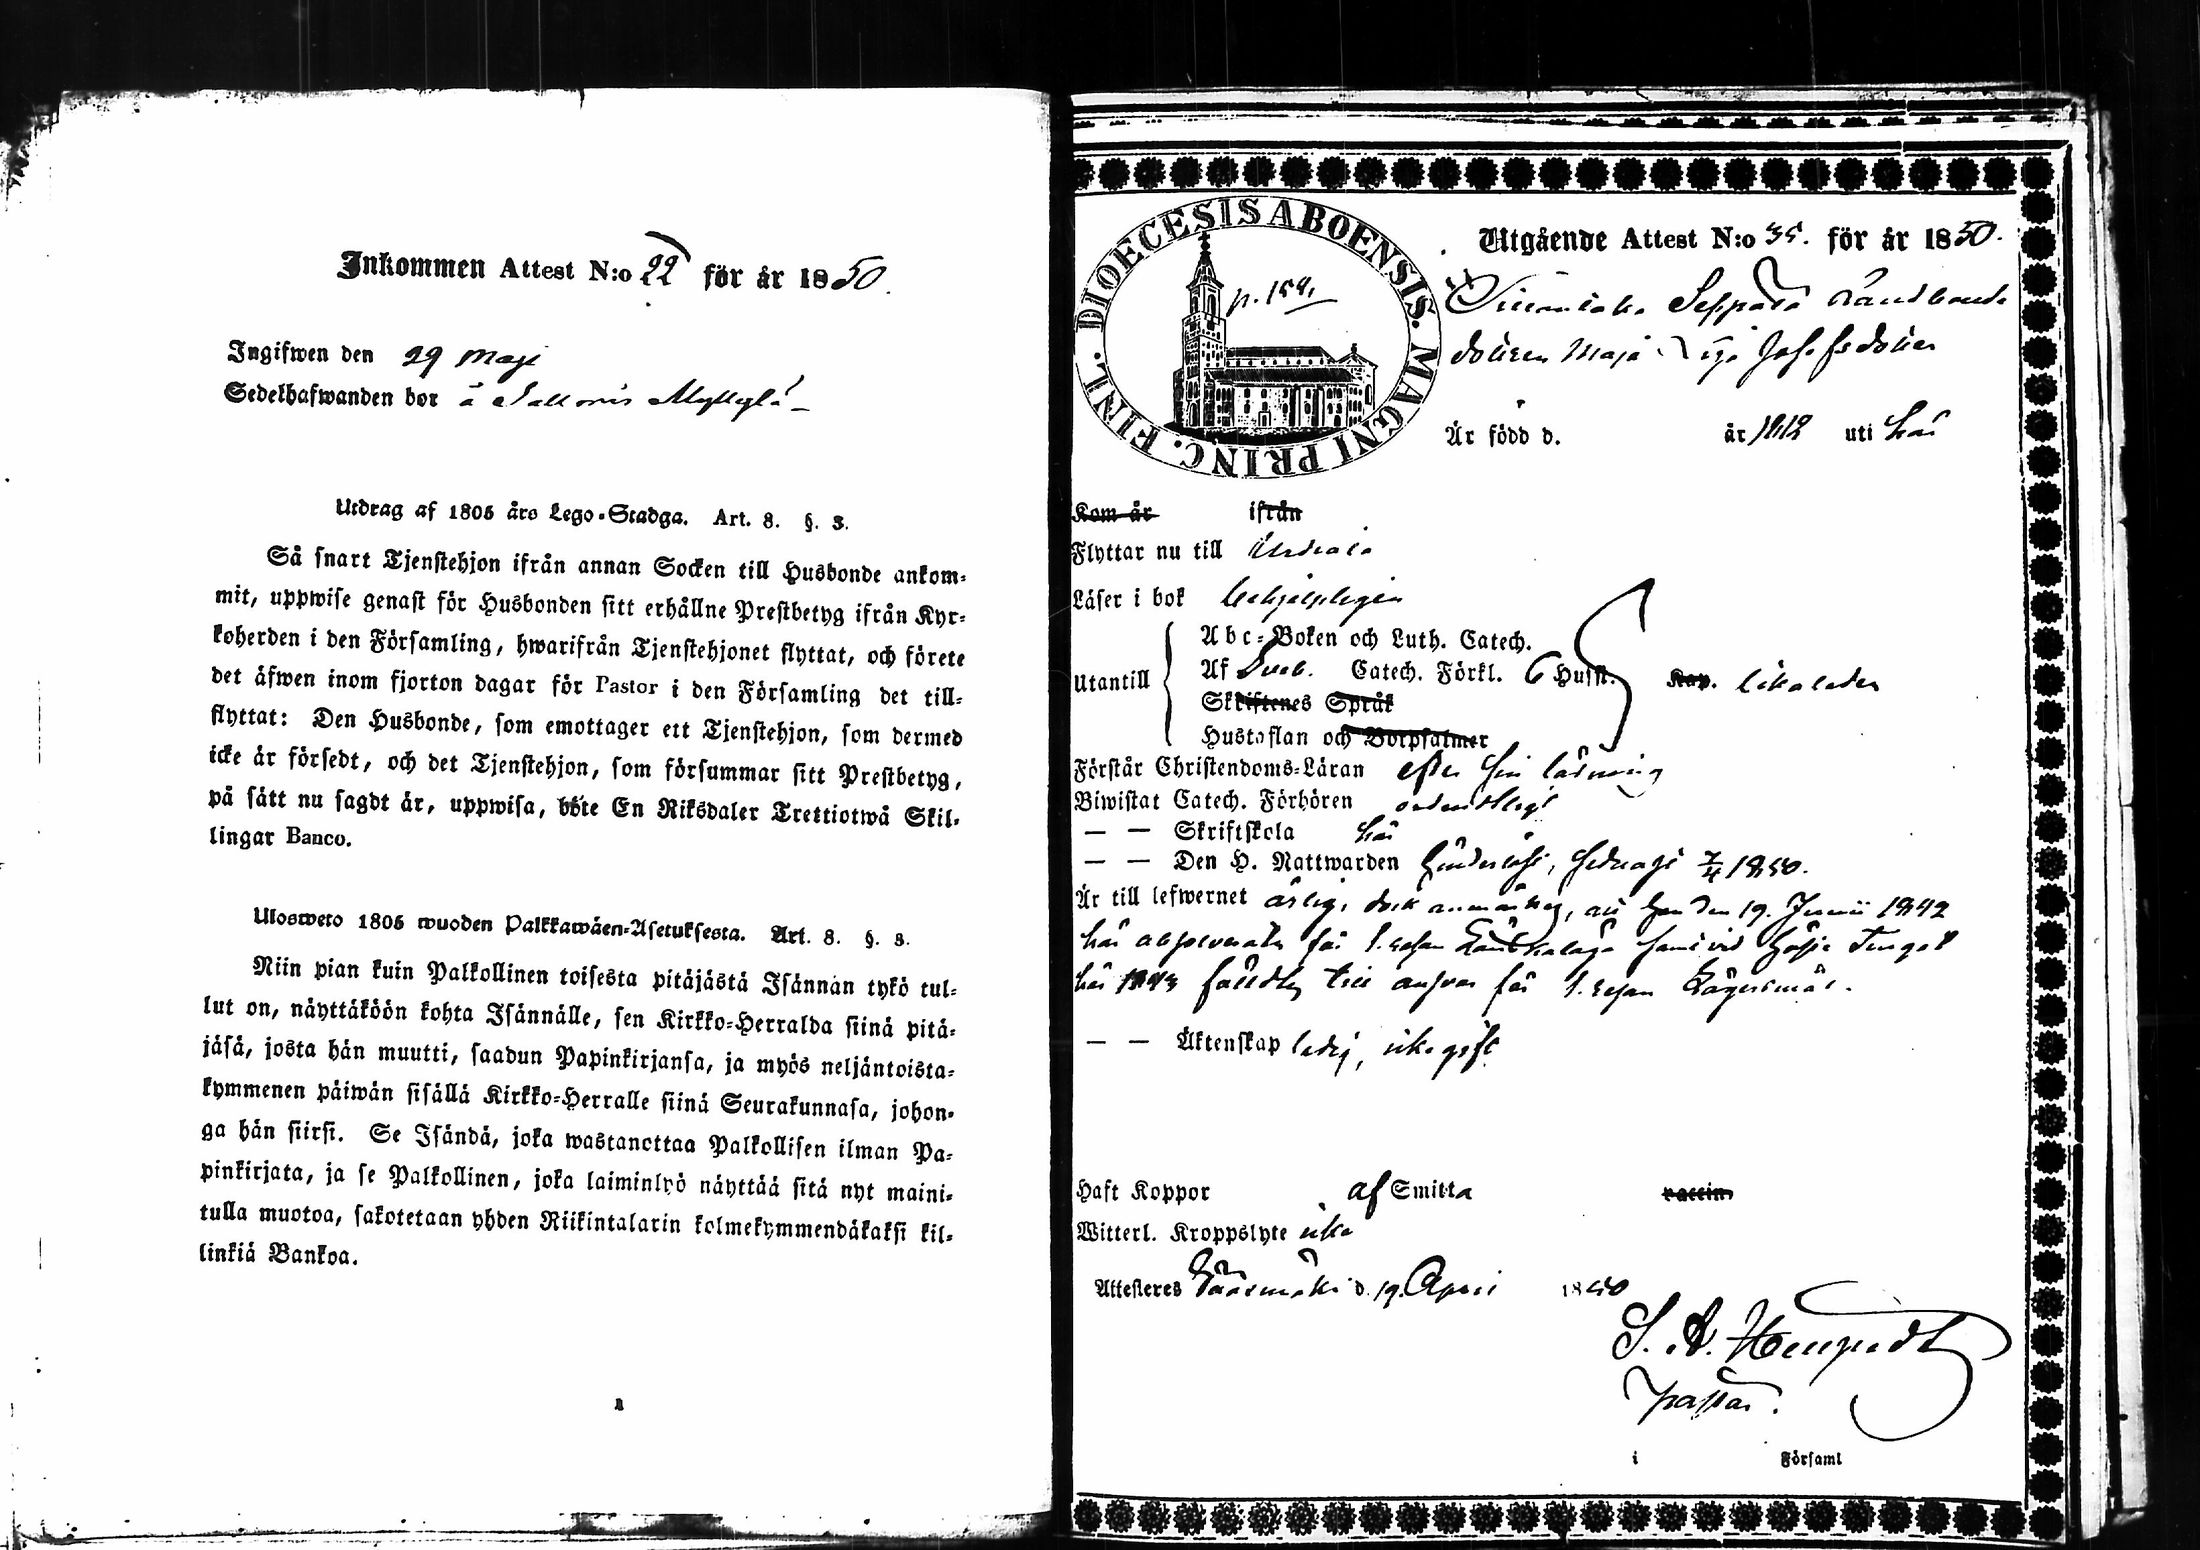 Inkommen Attest N:o 22 för år 1850.
Ingifwen den 29 Maji
Sedelhafwanden bor å
Utdrag af 1805 års Lego-Stadga. Art. 8. §. 3.
Så snart Tjenstehjon ifrån annan Socken till Husbonde ankom-
mit, uppwise genast för Husbonden sitt erhållne Prestbetyg ifrån Kyr-
koherden i den Församling, hwarifrån Tjenstehjonet flyttat, och förete
det äfwen inom fjorton dagar för Pastor i den Församling det till-
flyttat: Den Husbonde, som emottager ett Tjenstehjon, som dermed
icke är försedt, och det Tjenstehjon, som försummar sitt Prestbetyg,
på sätt nu sagdt är, uppwisa, böte En Riksdaler Trettiotwå Skil-
lingar Banco.
Ulosweto 1805 wuoden Palkkawäen-Asetuksesta. Art. 8. §. 3.
Niin pian kuin Palkollinen toisesta pitäjästä Isännän tykö tul-
lut on, näyttäköön kohta Isännälle, sen Kirkko-Herralda siinä pitä-
jäsä, josta hän muutti, saadun Papinkirjansa, ja myös neljäntoista-
kymmenen päiwän sisällä Kirkko-Herralle siinä Seurakunnasa, johon-
ga hän siirsi. Se Isändä, joka wastanottaa Palkollisen ilman Pa-
pinkirjata, ja se Palkollinen, joka laiminlyö näyttää sitä nyt maini-
tulla muotoa, sakotetaan yhden Riikintalarin kolmekymmendäkaksi kil-
linkiä Bankoa.
DIOECESIS ABOENSIS. MAGNI PRINC. FINL.
p. 154.
Utgående Attest N:o 35. för år 1850.
Seppälä
dottren Maja Josefsdotter
Är född d. år 1812 uti här
Kom år ifrån
Flyttar nu till Urdiala
Läser i bok behjelpligen
Utantill
Abc-Boken och Luth. Catech.
Af Sveb. Catech. Förkl. 6 Husst. Kap. likaledes
Skriftenes Språk
Hustaflan och Botpsalmer
Förstår Christendoms-Läran efter sin läsning
Biwistat Catech. Förhören ordentligt
— — Skriftskola här
— — Den H. Nattwarden sednast 7/4 1850.
Är till lefwernet ärlig, dock anmärkes, att hon den 19. Junii 1842
här för 1. resan samt vid Tinget
här 1843 fälldes till answar för 1. resan Lägersmål.
— — Äktenskap ledig, icke gift.
Haft Koppor af Smitta vaccin.
Witterl. Kroppslyte icke
Attesteres Sääxmäki d. 19. April 1850
S. A.
Pastor.
i Församl